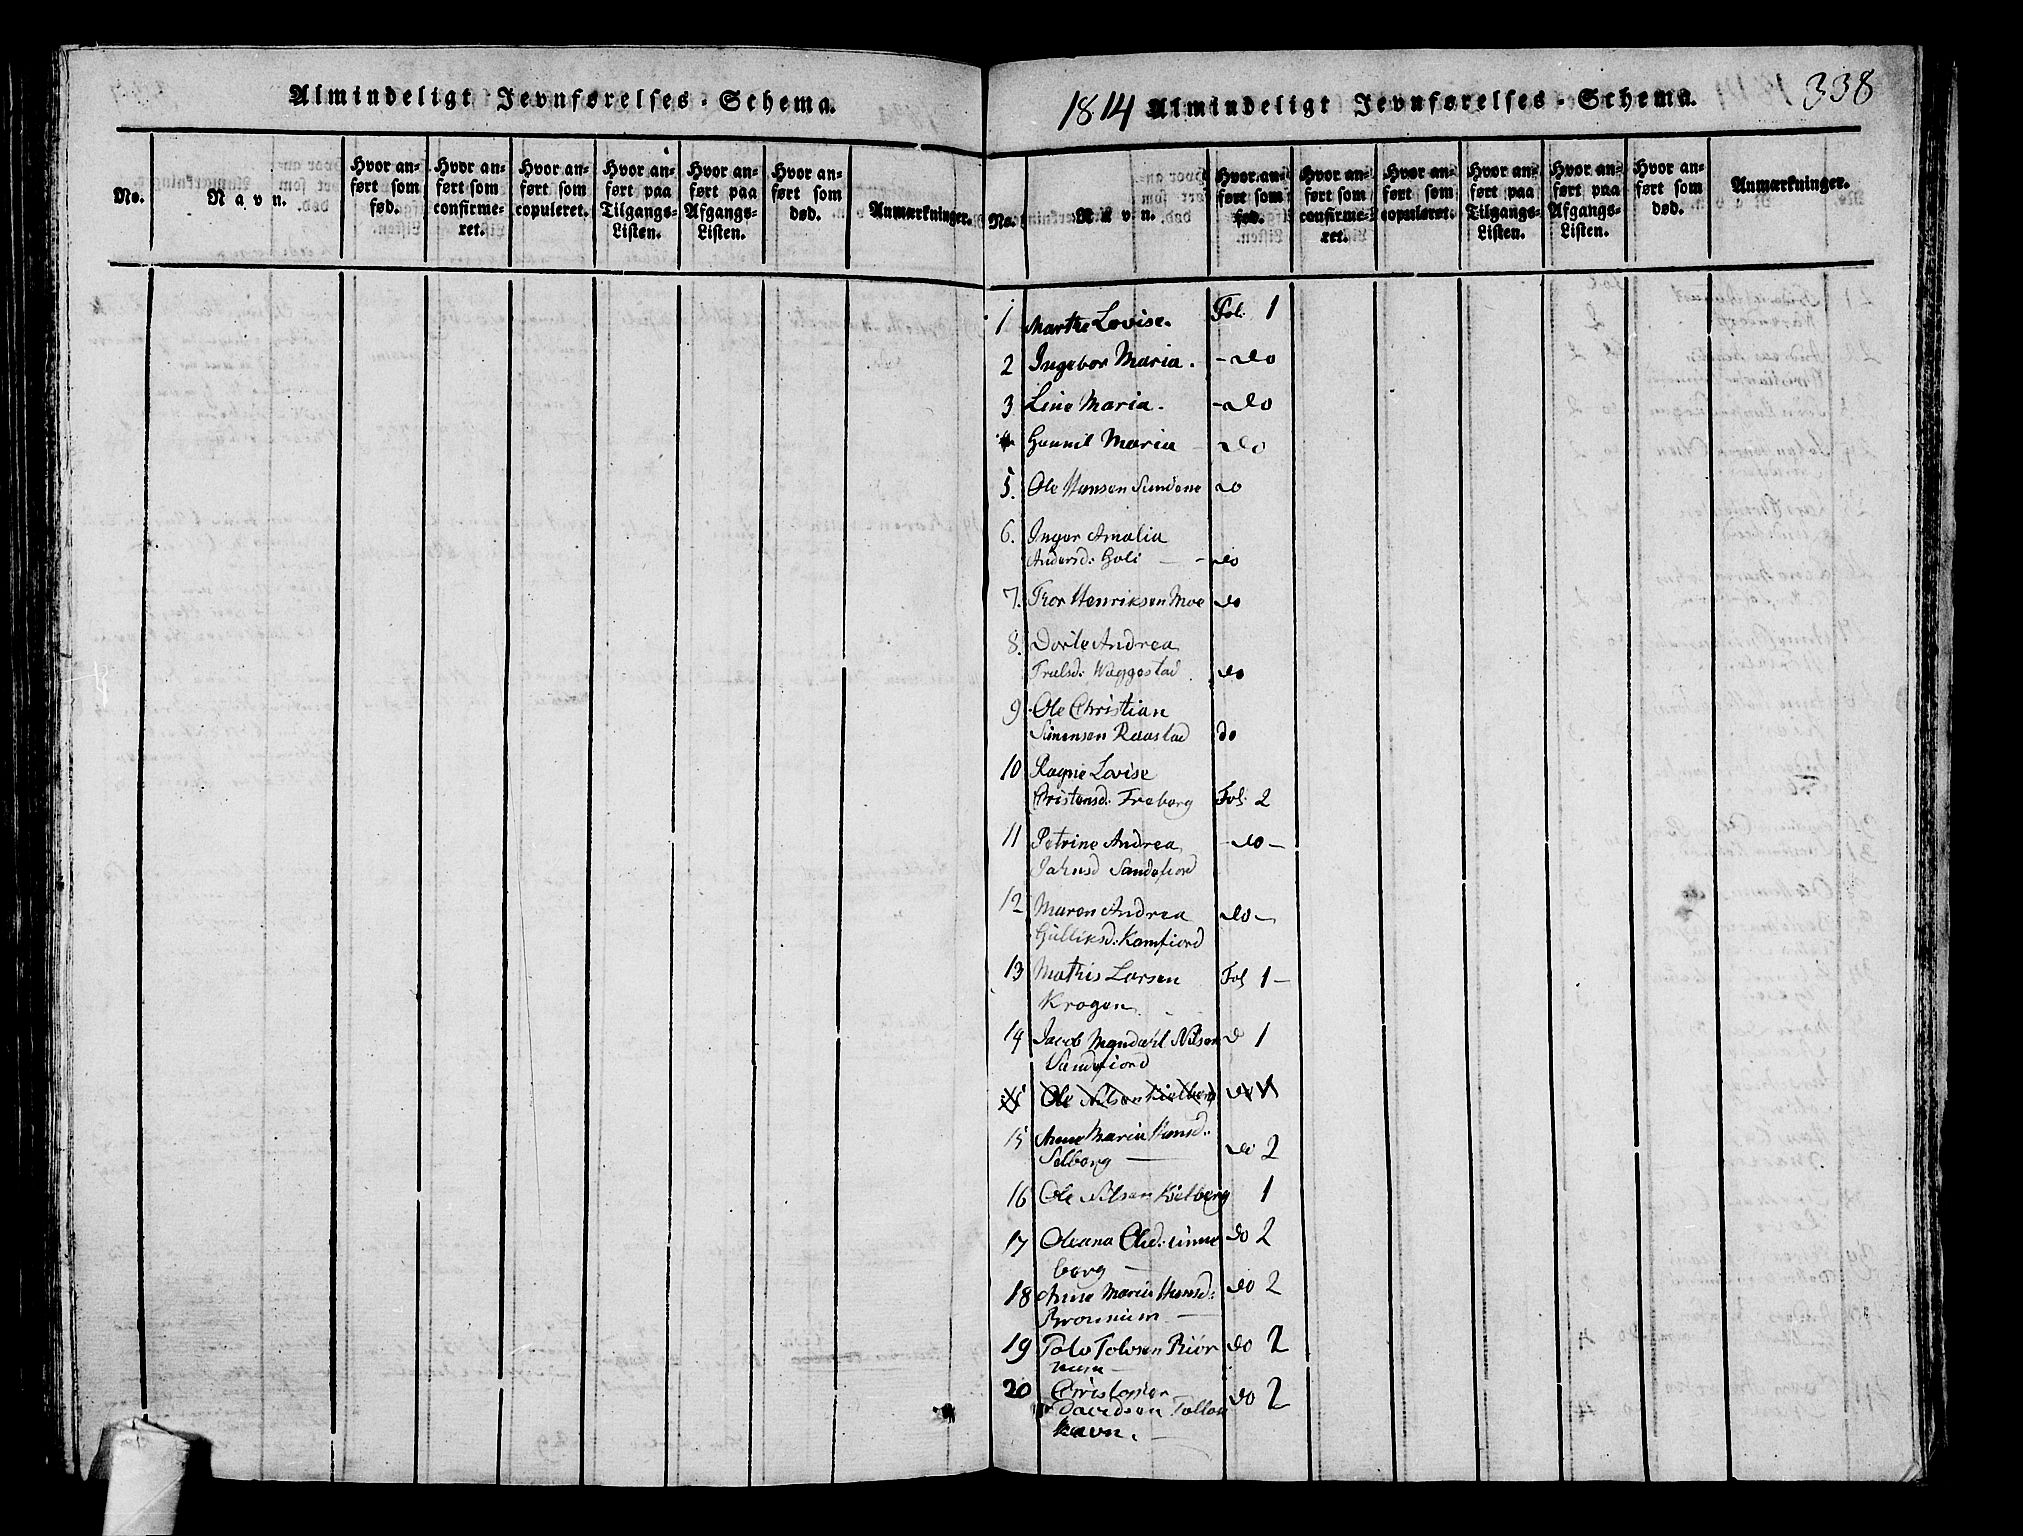 Almindeligt Jevnførelses-Schema.
No.
Navn.
Hvor an-
ført som
fød.
Hvor an-
ført som
confirme-
ret.
Hvor an-
ført som
copuleret.
Hvor an-
ført paa
Tilgangs-
Listen.
Hvor an-
ført paa
Afgangs-
Listen.
Hvor an-
ført som
død.
Anmærkninger.
1814 Almindeligt Jevnførelses-Schema. 338
No.
Navn.
Hvor an-
ført som
fød.
Hvor an-
ført som
confirme-
ret.
Hvor an-
ført som
copuleret.
Hvor an-
ført paa
Tilgangs-
Listen.
Hvor an-
ført paa
Afgangs-
Listen.
Hvor an-
ført som
død.
Anmærkninger.
1 Marthe Lovise. Fol. 1
2 Ingebor Maria. - do
3 Line Maria. - do
4 Gunnil Maria - do
5. Ole Hansen Sundene do
6. Inger Amalia
Andersd: Holi - - do
7. Thor Henriksen Moe do
8. Dorte Andrea
Trulsd: Waggestad do
9. Ole Christian
Simensen Raastad do
10 Ragne Lovise
Christensd: Freberg Fol: 2
11 Petrine Andrea - do -
Jahnsd Sandefiord
12 Maren Andrea do -
Gulliksd: Kamfiord
13 Mathis Larsen Fol 1 -
Krogen
14 Jacob Nilsen d 1
Sandefiord
15 Ole Nilsen Kielberg do 1
15 Anne Maria Hansd.
Solberg - do 2
16 Ole Nilsen Kielberg 1
17 Oleana Olsd: Unne do 2
berg -
18 Anne Maria Hansd: do 2
19 Tolv Tolvsen Biør do 2
num -
20 Christopher
Davidsen Tollou do 2
havn. -